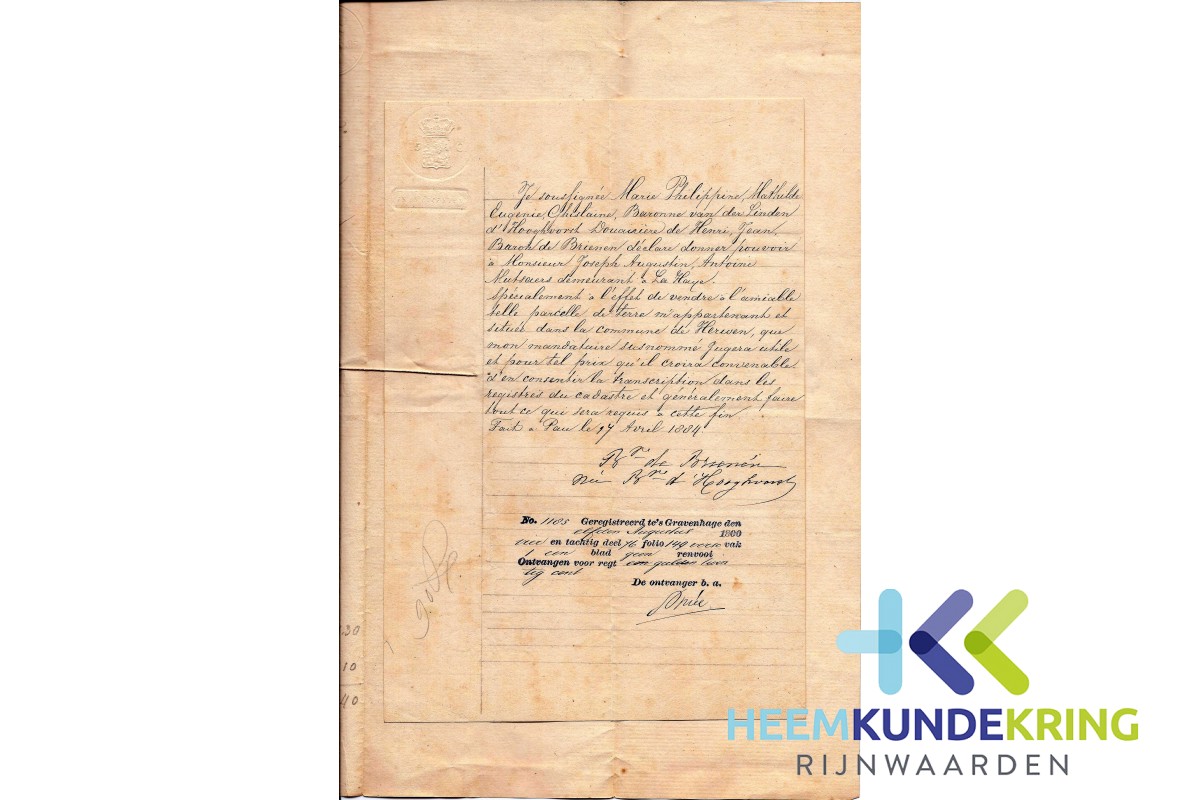 Je soussignée Marie Philippine, Mathilde
Eugenie, Ghislaine, Baronne van der Linden
d'Hooghvorst Douairière de Henri, Jean,
Baron de Brienen déclare donner pouvoir
à Monsieur Joseph Augustin, Antoine
Mutsaers demeurant à La Haye.
Spécialement à l'effet de vendre à l'amiable
telle parcelle de terre m'appartenant et
située dans la commune de Herwen, que
mon mandataire susnommé jugera utile
et pour tel prix qu'il croira convenable
d'en consentir la transcription dans les
registres du cadastre et généralement faire
tout ce qui sera requis à cette fin
Fait à Pau le 27 Avril 1884.
Bne de Brienen
née Bne d'Hooghvorst
No. 1185 Geregistreerd te's Gravenhage den
elfden Augustus 1800
vier en tachtig deel 76 folio 149 verso vak
1 een blad geen renvooi
Ontvangen voor regt een gulden twin
tig cent
De ontvanger b. a.
30
10
40
HEEMKUNDEKRING
RIJNWAARDEN